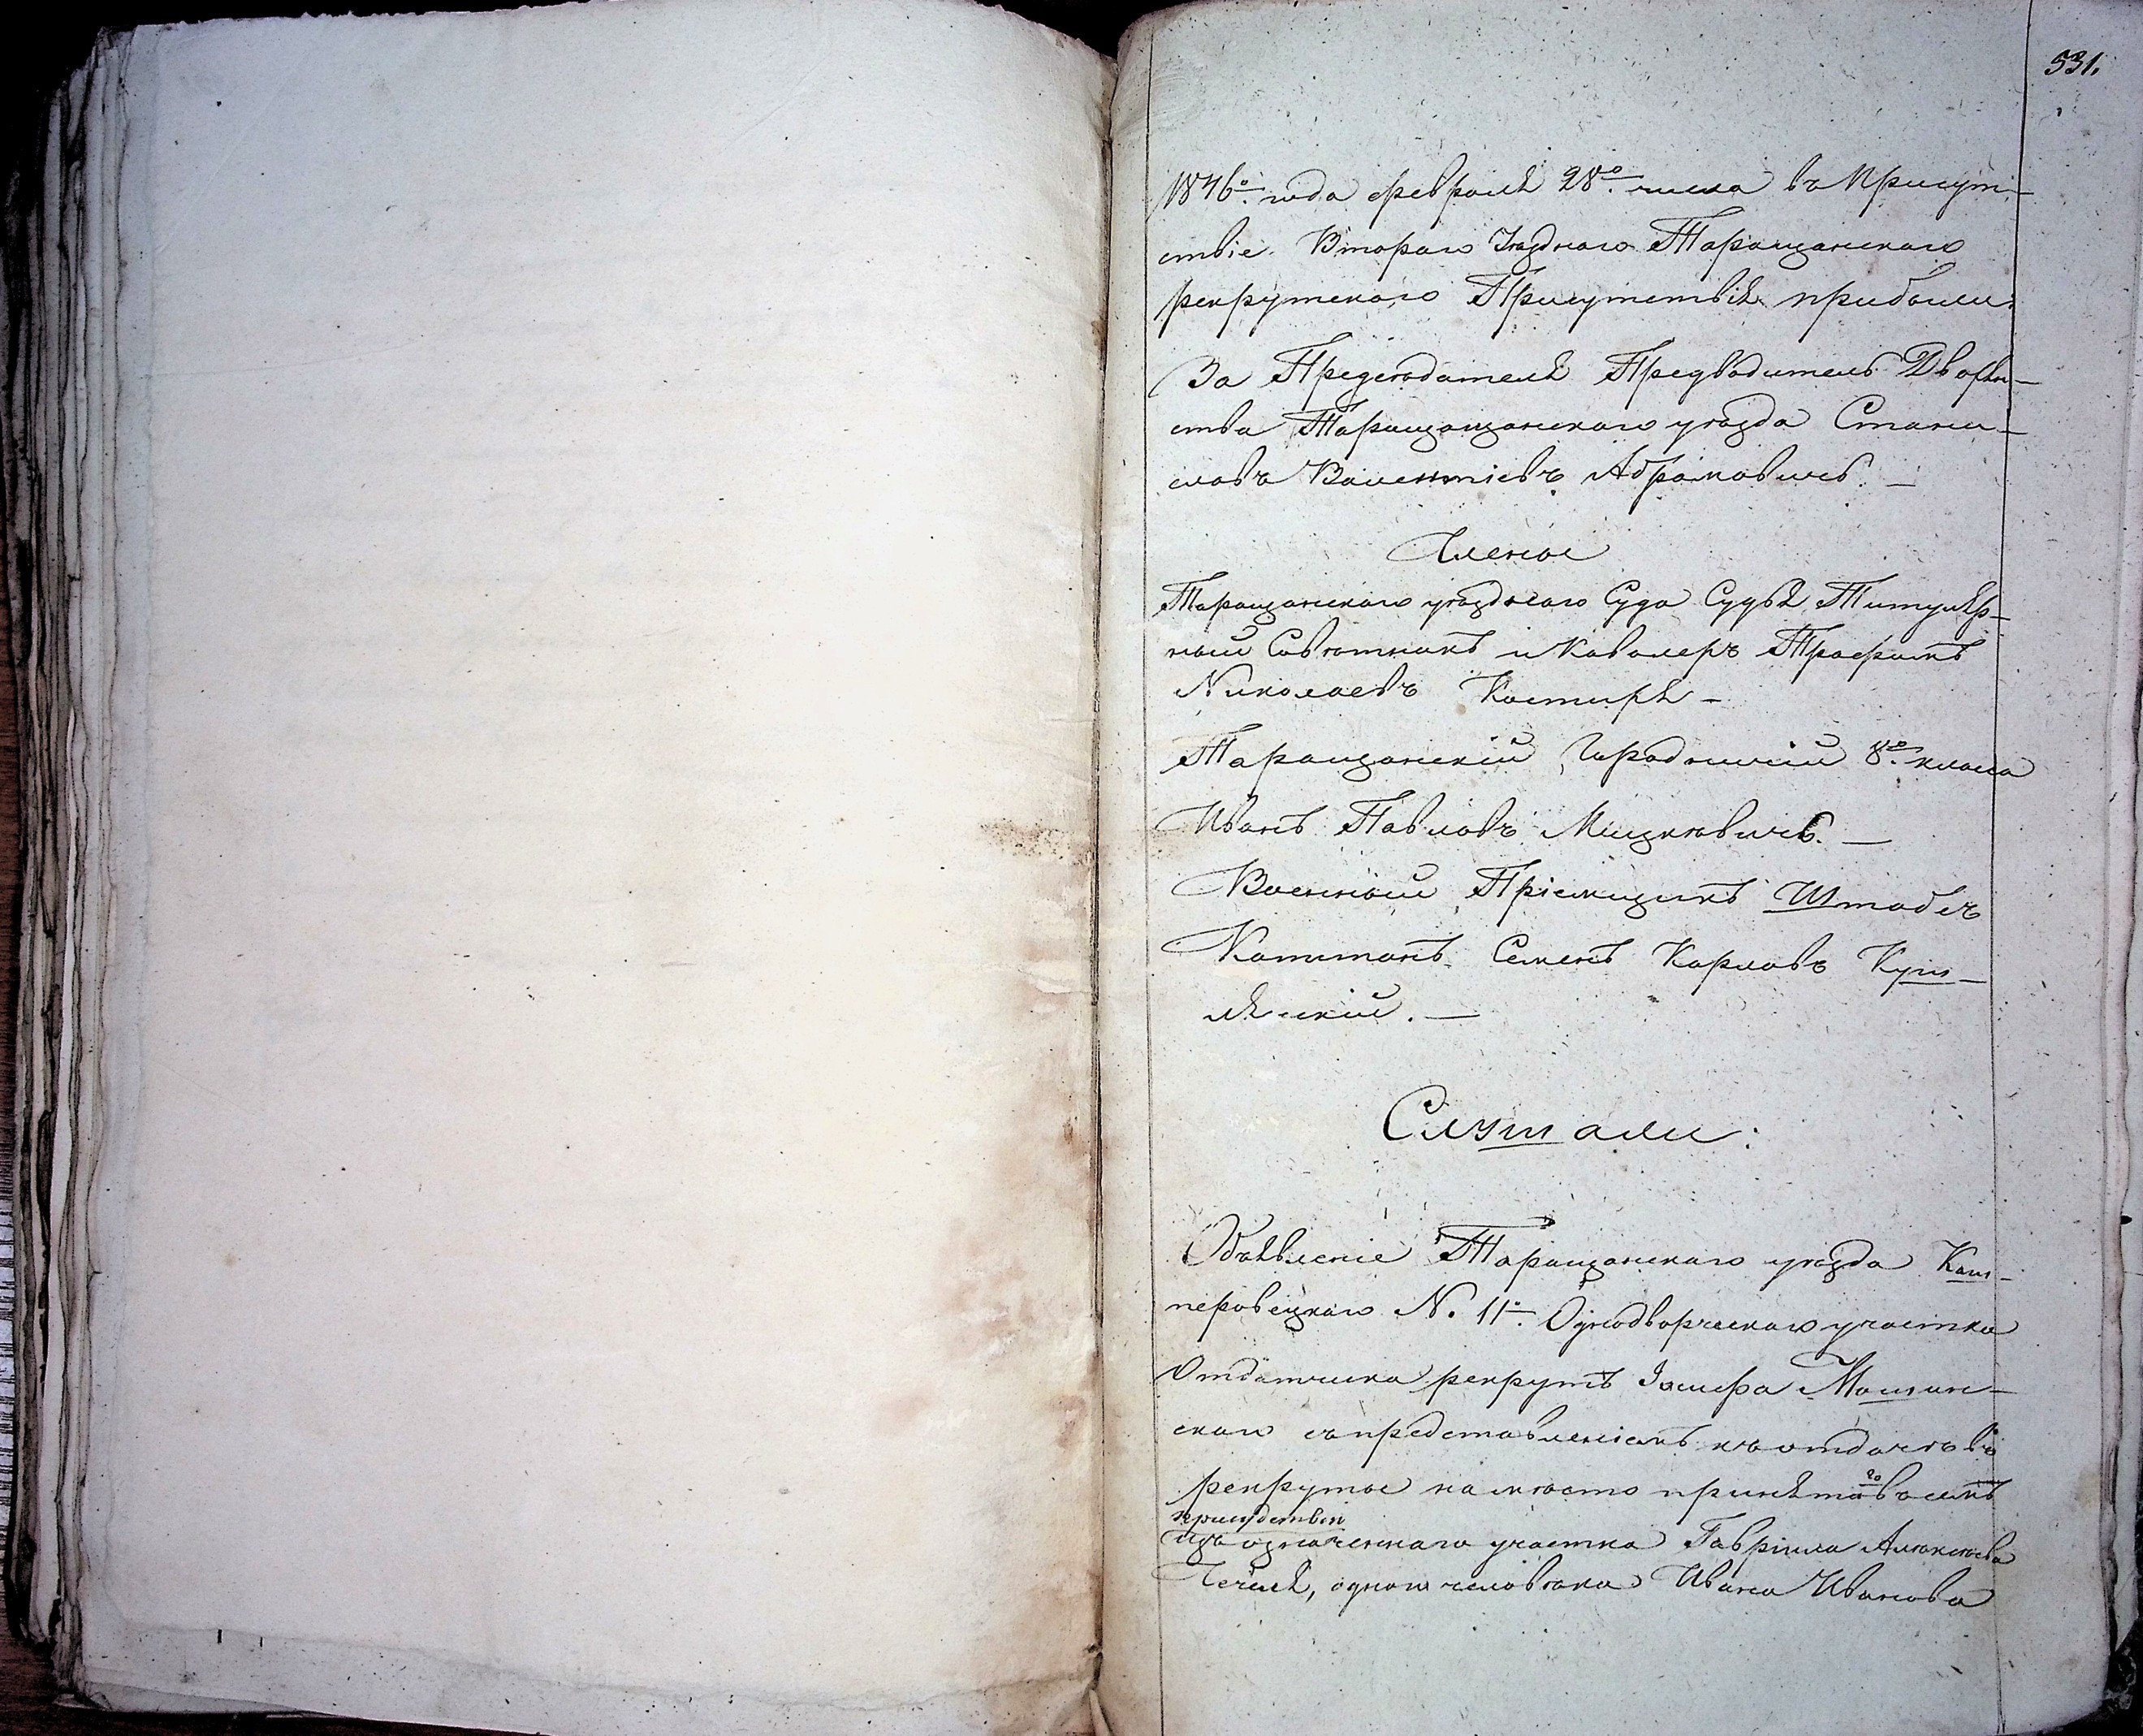 531.
1846<sup>о</sup>. года февраля 28<sup>о</sup>. числа въ Присут-
ствіе Втораго Уѣзднаго Таращанскаго
рекрутскаго Присутствія прибыли:
За Предсѣдателя Предводитель Дворян-
ства Таращащанскаго уѣзда Стани-
славъ Валентіевъ Абрамовичъ. —
Члены
Таращанскаго уѣзднаго Суда Судья Титуляр-
ный Совѣтникъ и Кавалеръ Трофимъ
Николаевъ Костыря —
Таращанскій Городничій 8<sup>о</sup>. класа
Иванъ Павловъ Мицкѣвичъ. —
Военный Пріемщикъ Штабсъ
Капитанъ Семенъ Карловъ Куш-
лянскій. —
Слушали:
Объявленіе Таращанскаго уѣзда Каш-
перовецкаго N. 11<sup>о</sup>. Однодворческаго участка
Отдатчика рекрутъ Іосифа Машин-
скаго съ представленіемъ къ отдачѣ въ
рекруты на мѣсто принятаго въ семъ
присудствіи
изъ означеннаго участка Гавріила Алѣксѣева
одного человѣка Ивана Иванова